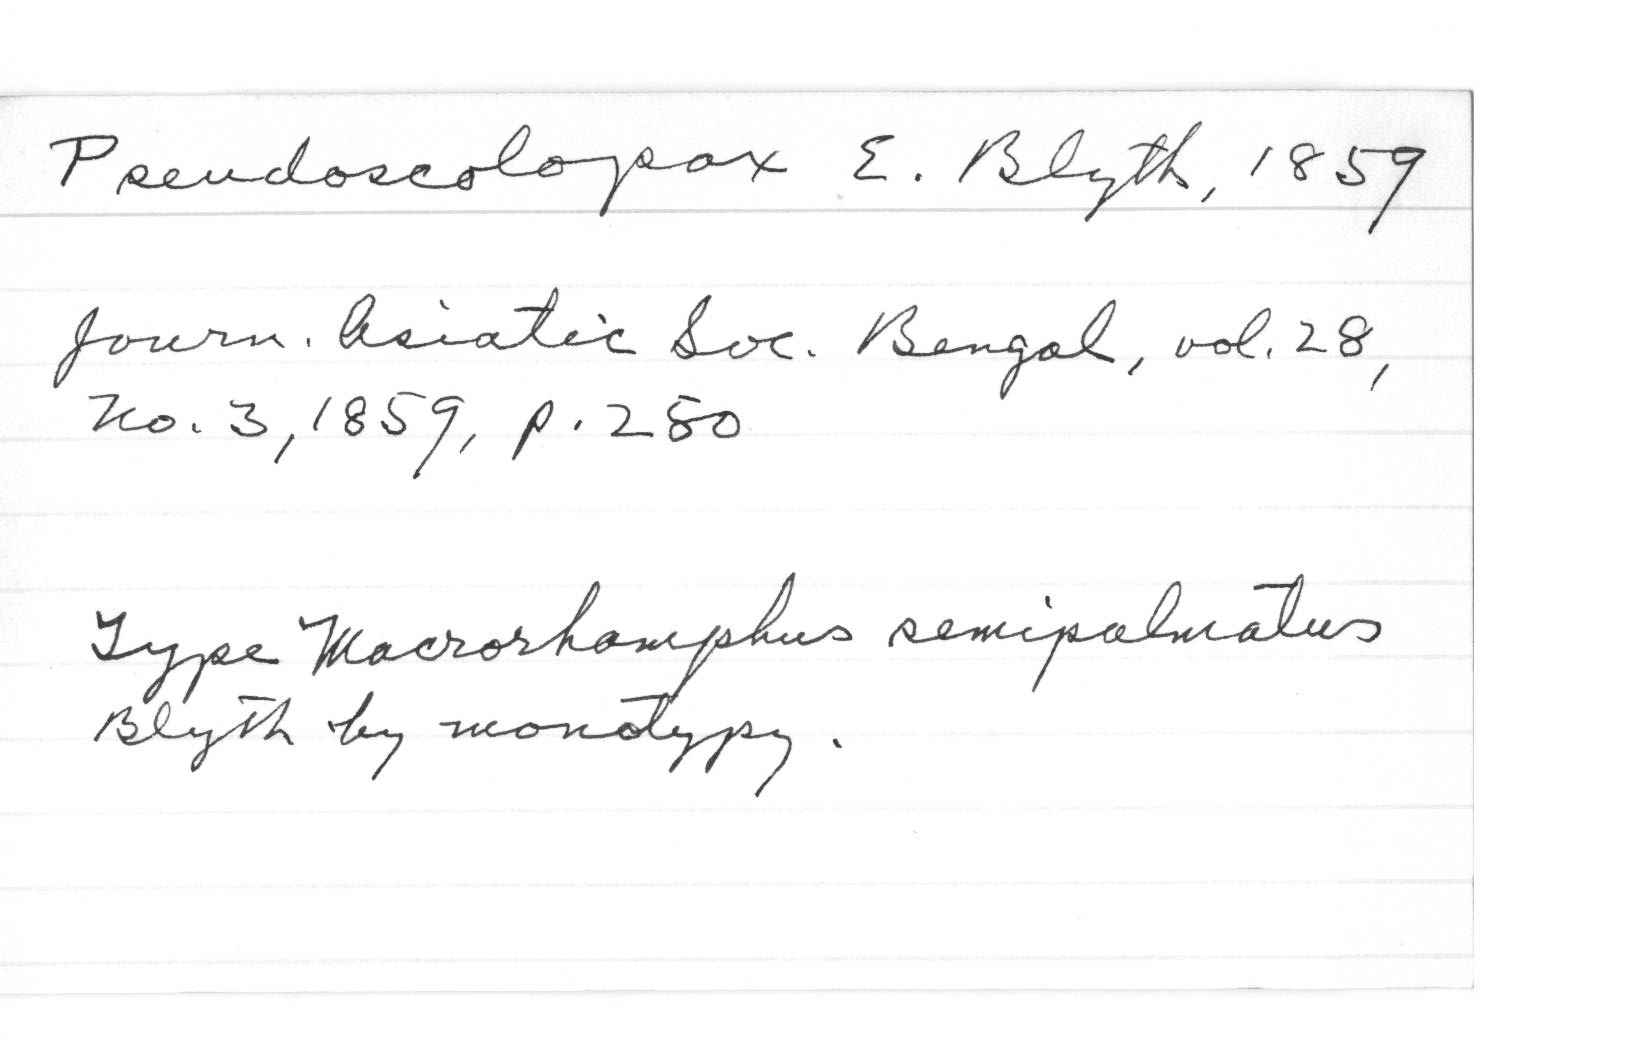 Pseudoscolopax E. Blyth, 1859
Journ. Asiatic Soc. Bengal, vol. 28,
No. 3, 1859, p. 280
Type Macrorhamphus semipalmatus
Blyth by monotypy.